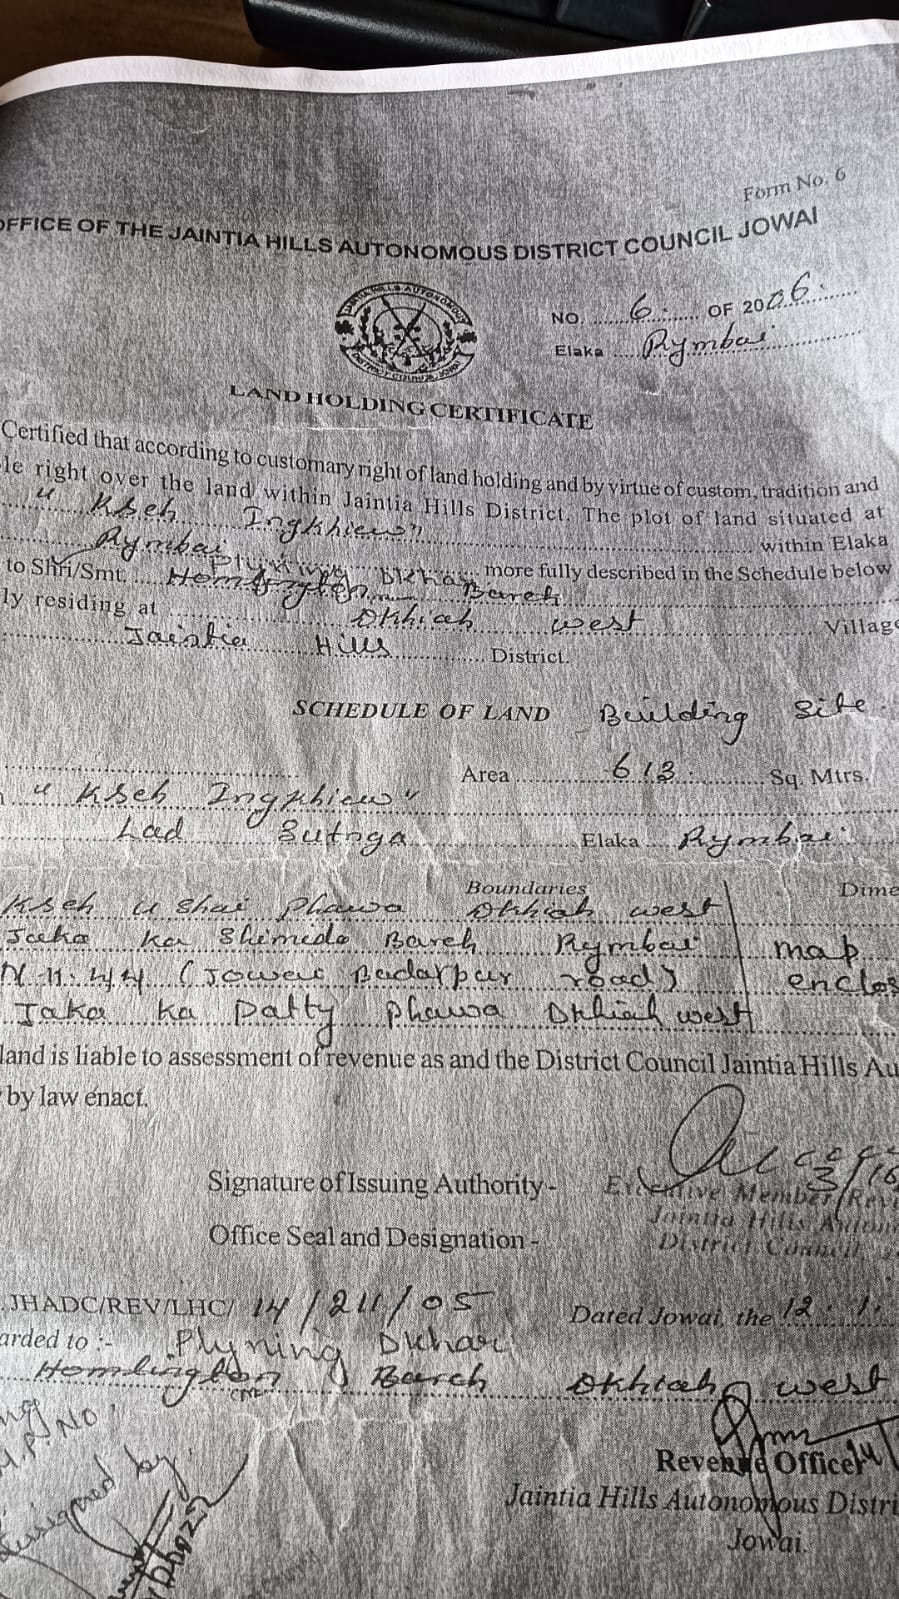 Form No. 6
OFFICE OF THE JAINTIA HILLS AUTONOMOUS DISTRICT COUNCIL JOWAI
NO. 6 OF 2006.
Elaka Rymbai
LAND HOLDING CERTIFICATE
Certified that according to customary right of land holding and by virtue of custom, tradition and
le right over the land within Jaintia Hills District. The plot of land situated at
" Kseh Ingkhiew"
Rymbai within Elaka
more fully described in the Schedule below
to Shri/Smt. Bareh
ly residing at Okhiah west Village
Jaintia Hills District.
SCHEDULE OF LAND Building Site.
Area 613. Sq. Mtrs.
" Kseh Ingkhiew"
Lad Sutnga Elaka Rymbai
Boundaries Dime
Kseh u Shai Phawa Okhiah west
Jaka ka Shimeda Bareh Rymbai map
N.H. 44 (Jowai Badarpur road) enclos
Jaka ka Datty Phawa Okhiah west
land is liable to assessment of revenue as and the District Council Jaintia Hills Au
by law enact.
Signature of Issuing Authority -
Executive Member Rev
Office Seal and Designation -
Jaintia Hills Auton
District Council
JHADC/REV/LHC/ 14/211/05 Dated Jowai, the 12. 1.
arded to :- Plyning Dkhar
Homlington Bareh Okhiah west
Revenue Officer
Jaintia Hills Autonomous Distri
Jowai.
Designed by